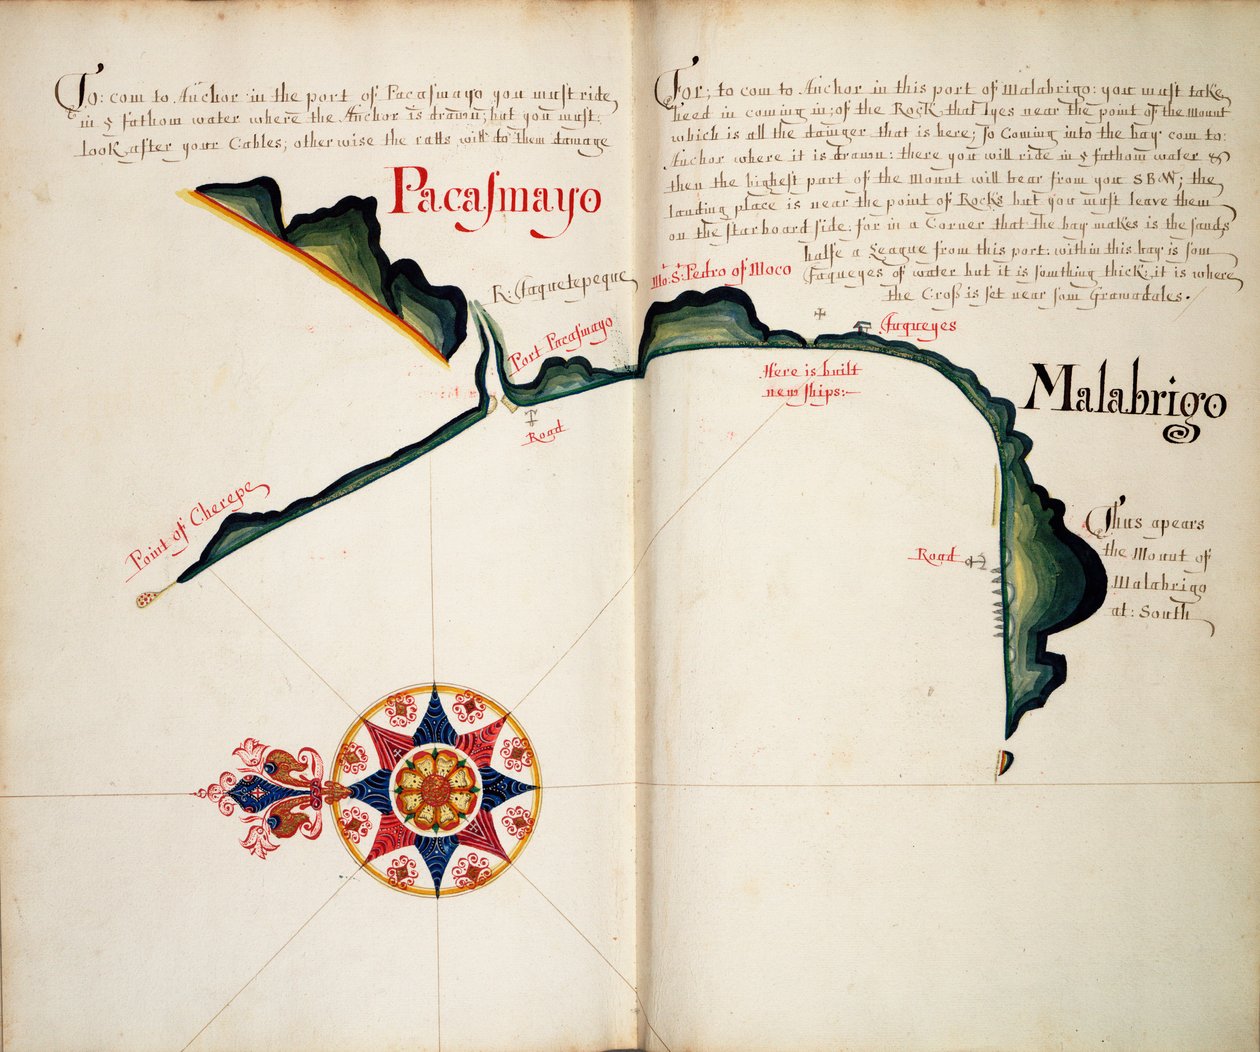 To: com to Anchor in the port of Pacasmayo you must ride
in 5 fathom water where the Anchor is drawn; but you must
Look after your Cables; otherwise the ratts will do them damage
Pacasmayo
R: Jaquetepeque
Port Pacasmayo
Road
Point of Cherepe
For; to com to Anchor in this port of Malabrigo: you must take
heed in coming in; of the Rock that lyes near the point of the mount
which is all the danger that is here; So Coming into the bay com to:
Anchor where it is drawn: there you will ride in 5 fathom water &
then the highest part of the mount will bear from you SBW; the
landing place is near the point of Rocks but you must leave them
on the starboard side; for in a Corner that the bay makes is the sands
halfe a League from this port: within this bay is som
Jaqueyes of water but it is somthing thick; it is where
the Cross is set near som Gramadales.
Mo: S: Pedro of Moco
Jaqueyes
Here is built
new ships:
Malabrigo
Road
Thus apears
the Mount of
Malabrigo
at: South